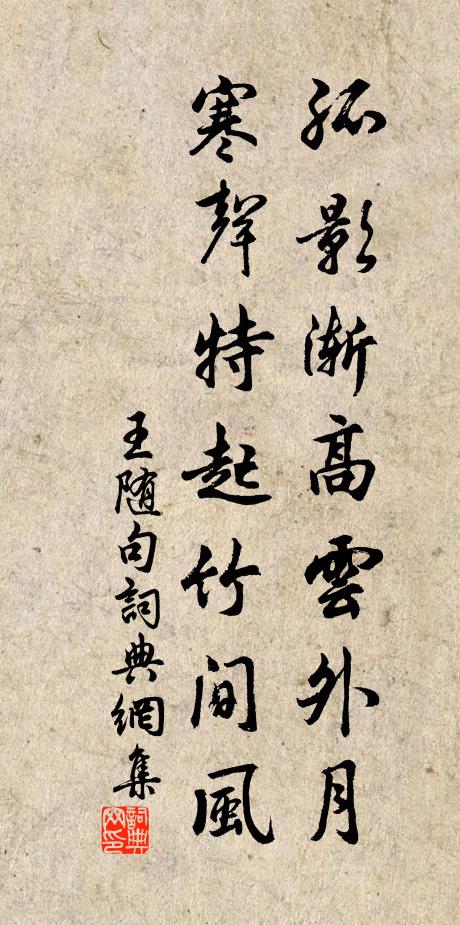 孤影漸高雲外月
寒聲特起竹間風
王随句詞典網集
詞典網印